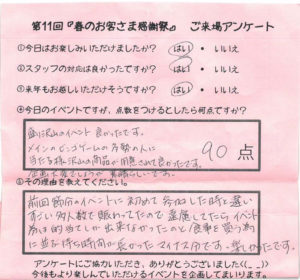 第11回『春のお客さま感謝祭』 ご来場アンケート
①今日はお楽しみいただけましたか? はい ・ いいえ
②スタッフの対応は良かったですか? はい ・ いいえ
③来年もお越しいただけそうですか? はい ・ いいえ
④今日のイベントですが、点数をつけるとしたら何点ですか?
沢山のイベント 良かったです。
メインのビンゴゲームの 多勢の人に
当たる様に沢山の商品が用意されて良かったです。
90 点
⑤その理由を教えてください。
前回 節分のイベントに初めて参加した時と違い
すごい多人数で賑わってたので 遠慮してたらイベント
しか出来なかったのと 食事を買う為
に 並ぶ待ち時間が長かった マイナス分です。楽しかったです。
アンケートにご協力いただき、ありがとうございました(_ _)
今後もより楽しんでいただけるイベントを企画してまいります。